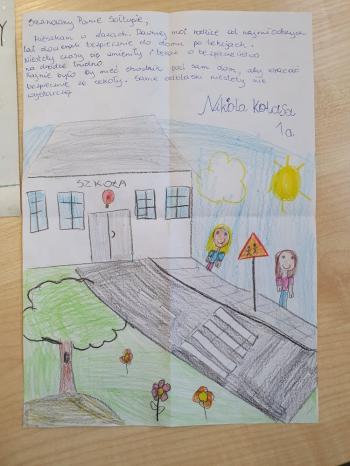 Szanowny Panie Sołtysie,
Mieszkam w Łazach. Dawniej moi rodzice od najmłodszych
lat dowierali bezpiecznie do domu po lekcjach.
Niestety czasy się zmieniły i teraz o bezpieczeństwo
na drodze trudno.
Fajnie było by mieć chodnik pod sam dom, aby wracać
bezpiecznie ze szkoły. Same odblaski niestety nie
wystarczą.
Nikola Kołasa
1a
SZKOŁA